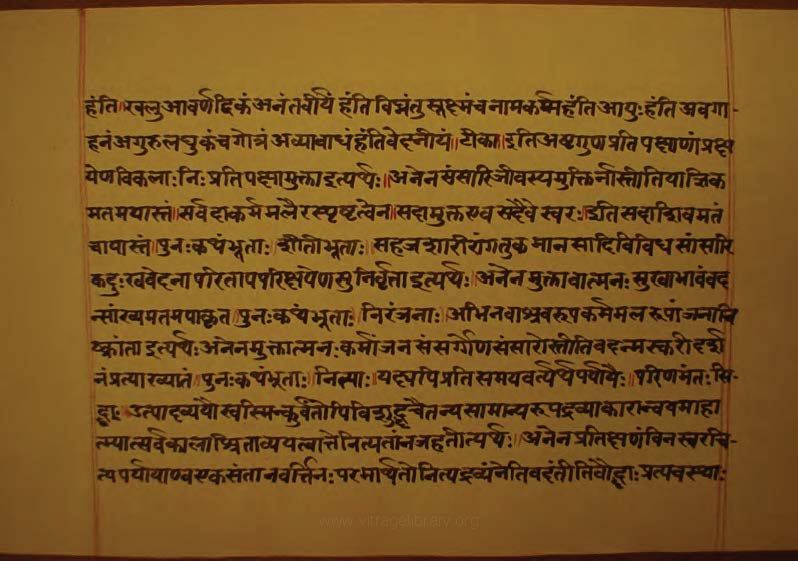 हंति॥खलु आवर्णद्विकं अनंतवीर्यं हंति विघ्नंतु सूक्ष्मंच नामकर्म्म हंति आयुः हंति अवगा-
हनं अगुरुलघुकंच गोत्रं अव्याबाधं हंति वेदनीयं॥ टीका॥ इति अष्टगुण प्रतिपक्षाणां प्रक्ष
येण विकलाः निः प्रतिपक्षा मुक्ता इत्यर्थः॥ अनेन संसारिजीवस्य मुक्तिर्नास्तीति याज्ञिक
मतमपास्तं॥ सर्वदा कर्ममलैरस्पृष्टत्वेन॥ सदामुक्त एव सदैवेस्वरः॥ इति सदाशिवमतं
चापास्तं॥ पुनः कथंभूताः॥ शीतीभूताः॥ सहज शारीरांगतुक मानसादि विविध सांसारि
क दुःख वेदना परिताप परिक्षयेण सुनिर्वृता इत्यर्थः॥ अनेन मुक्तावात्मनः सुखाभावं वद
न्सांख्यमतमपाकृतं॥ पुनः कथंभूताः॥ निरंजनाः॥ अभिनवाश्रवरुपकर्ममलरुपांजनान्नि
ष्क्रांता इत्यर्थः॥ अनेन मुक्तात्मनः कर्मांजन संसर्गेण संसारोस्तीति वदन्मस्करीदर्श
नं प्रत्याख्यातं॥ पुनः कथंभूताः॥ नित्याः॥ यद्यपि प्रतिसमयवर्त्यर्थपर्यायैः॥ परिणमंतः सि
द्धाः॥ उत्पादव्ययौ स्वस्मिन्कुर्वंतोपि विशुद्ध चैतन्य सामान्यरुप द्रव्याकारान्वय माहा
त्म्यात्सर्वकालाश्रिताव्ययत्वात्ते नित्यतां न जहतीत्यर्थः॥ अनेन प्रतिक्षणं विनस्वरचि-
त्पर्याया एव एक संतानवर्त्तिनः परमार्थतो नित्यद्रव्यं नेति वदंतीति बौद्धाः प्रत्यवस्थाः
www.vitragelibrary.org